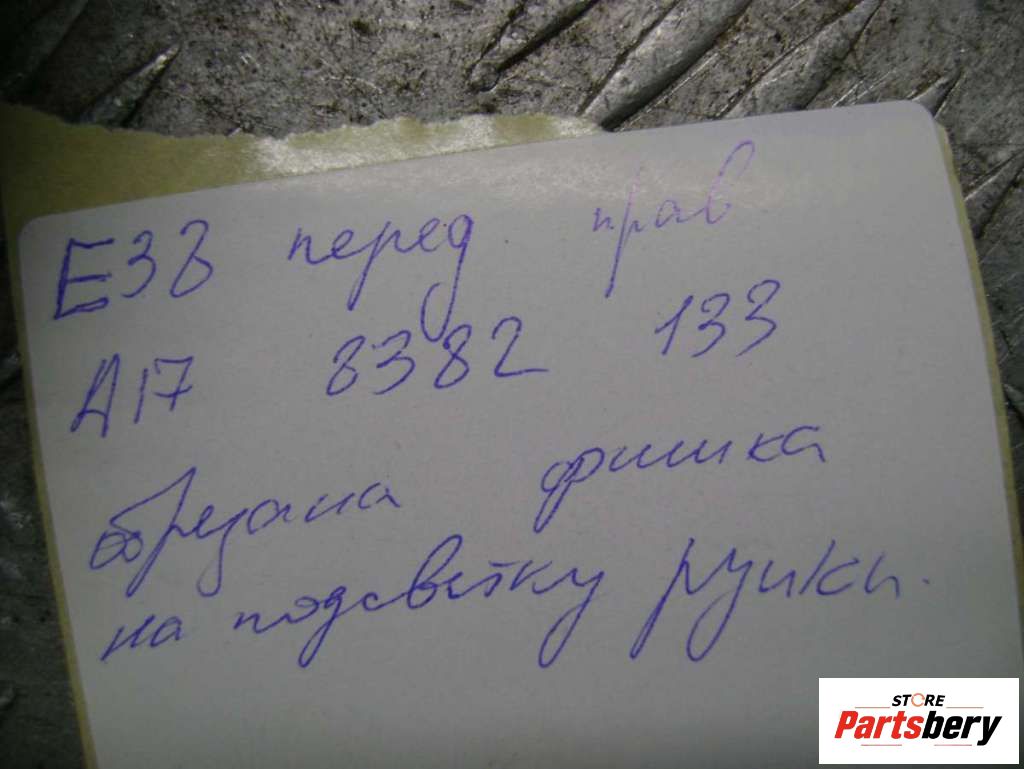 E38 перед прав
A17 8382 133
обрезана фишка
на подсветку ручки.
STORE
Partsbery